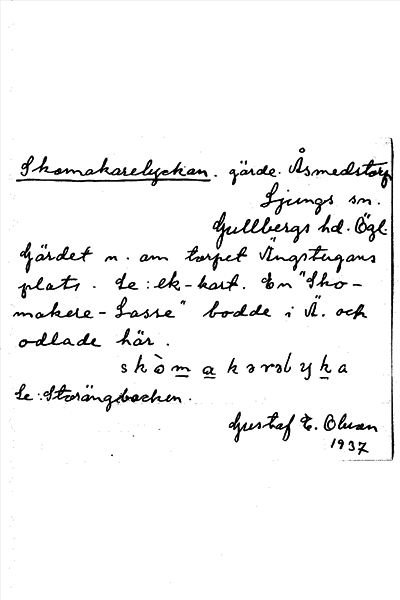 Skomakarelyckan. gärde. Åsmedstorp
Ljungs sn.
Gullbergs hd. Ögl.
Gärdet n. om torpet Ängstugans
plats. Se: ek-kart. En "Sko-
makere-Lasse" bodde i Ä. och
odlade här.
skòmakərəlyka
Se: Storängsbacken.
Gustaf E. Olsson
1937